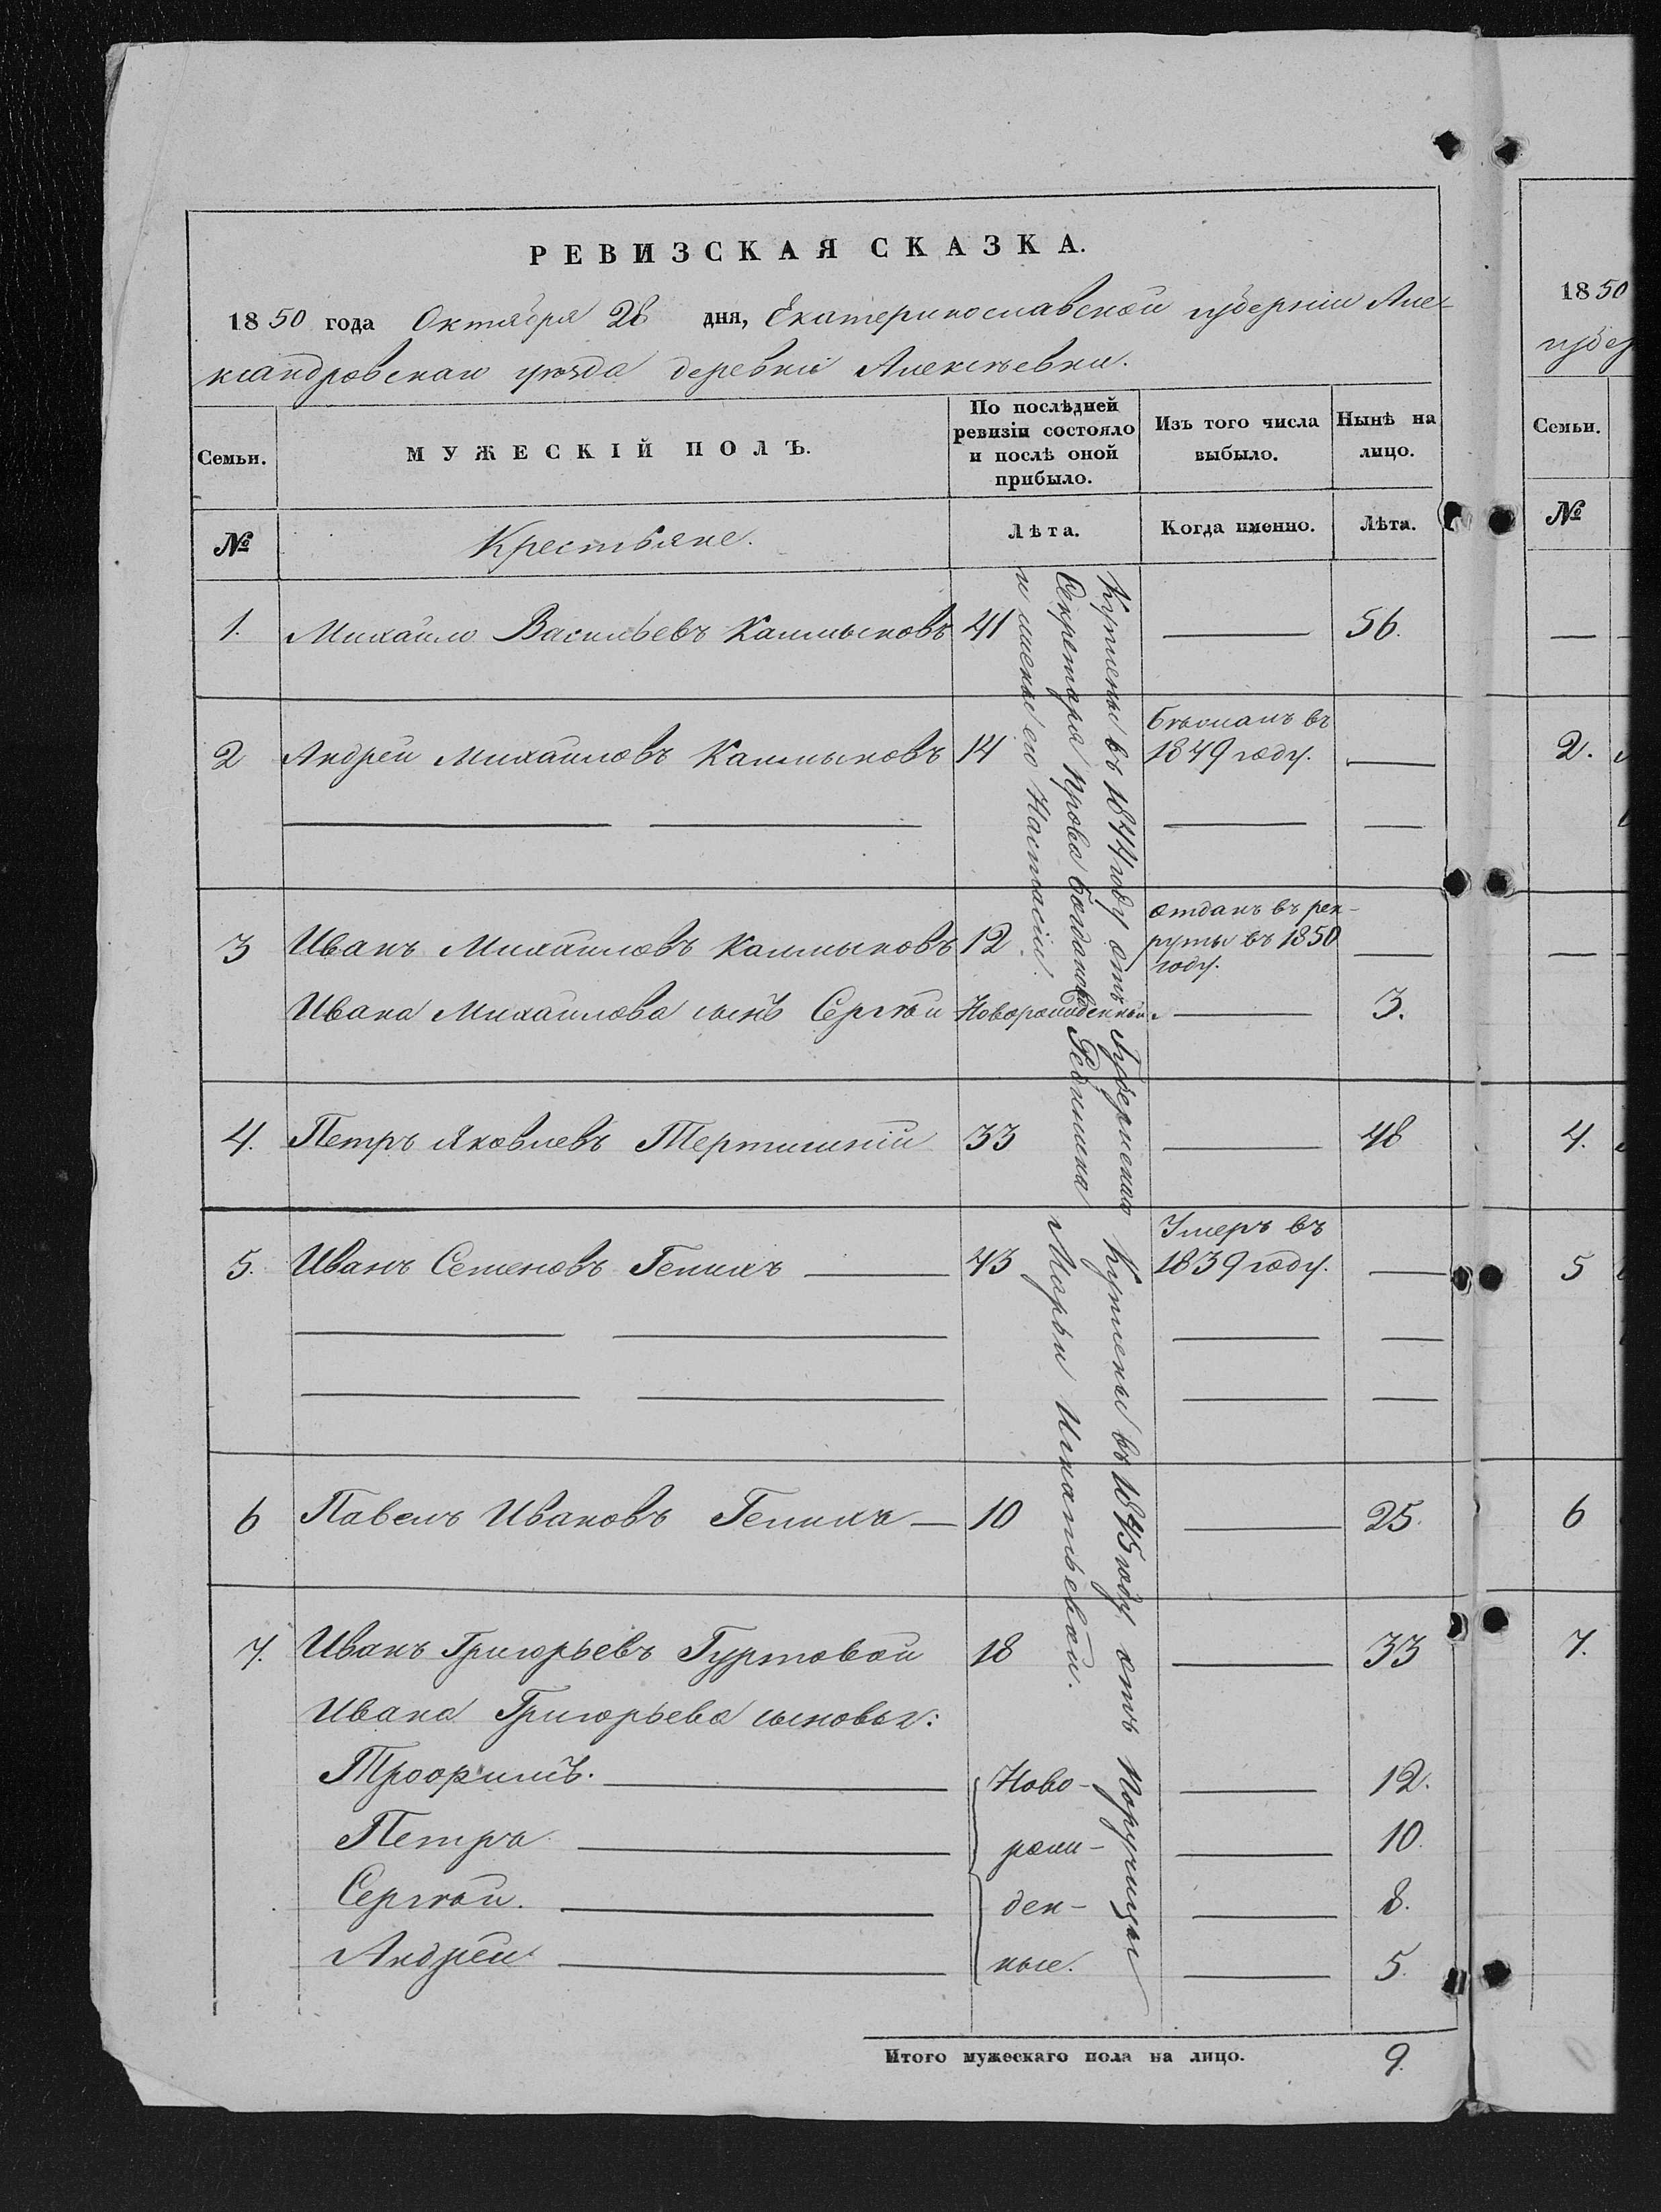 РЕВИЗСКАЯ СКАЗКА.
1850 года Октября 28 дня, Екатеринославской губерніи Але-
ксандровскаго уѣзда деревни Алексѣевки.
Семьи.
МУЖЕСКІЙ ПОЛЪ.
По послѣдней
ревизіи состояло
и послѣ оной
прибыло.
Изъ того числа
выбыло.
Нынѣ на
лицо.
№
Крестьяне.
Лѣта.
Когда именно.
Лѣта.
1. Михайло Васильевъ Калмыковъ 41 56.
2 Андрей Михайловъ Калмыковъ 14
Бѣжалъ въ
1849 году.
3 Иванъ Михайловъ Калмыковъ 12
отданъ въ рек-
руты въ 1850
году.
Ивана Михайлова сынъ Сергѣй Новорожденный 3.
4. Петръ Яковлевъ 33 48
5. Иванъ Семеновъ 43
Умеръ въ
1839 году.
6 Павелъ Ивановъ 10 25.
7. Иванъ Григорьевъ Гуртовой 18 33
Ивана Григорьева сыновья:
Трофимъ. Ново- 12.
Петръ рож- 10.
Сергѣй. ден- 8.
Андрей ные. 5.
Куплены в 1844 году отъ Губернскаго
Секретаря Прова Богданова
и жены его Настасіи.
Куплены въ 1845 году отъ Порутчицы
Марьи Игнатьевой.
Итого мужескаго пола на лицо. 9.
1850
губер
Семьи.
№
2.
4.
5
6
7.